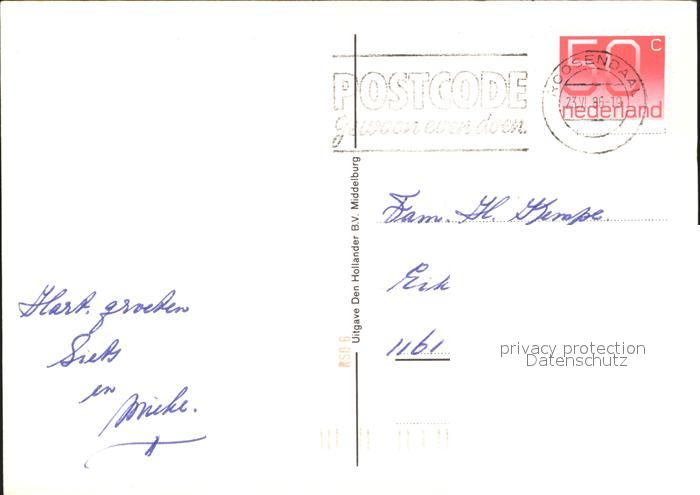 POSTCODE
gewoon even doen.
50 c
nederland
ROOSENDAAL
23.VI.86-19
Uitgave Den Hollander B.V. Middelburg
Fam. H. Kempe.
Eik
1161
privacy protection
Datenschutz
Hart. groeten
Siets
en
Mieke.
RSD 6